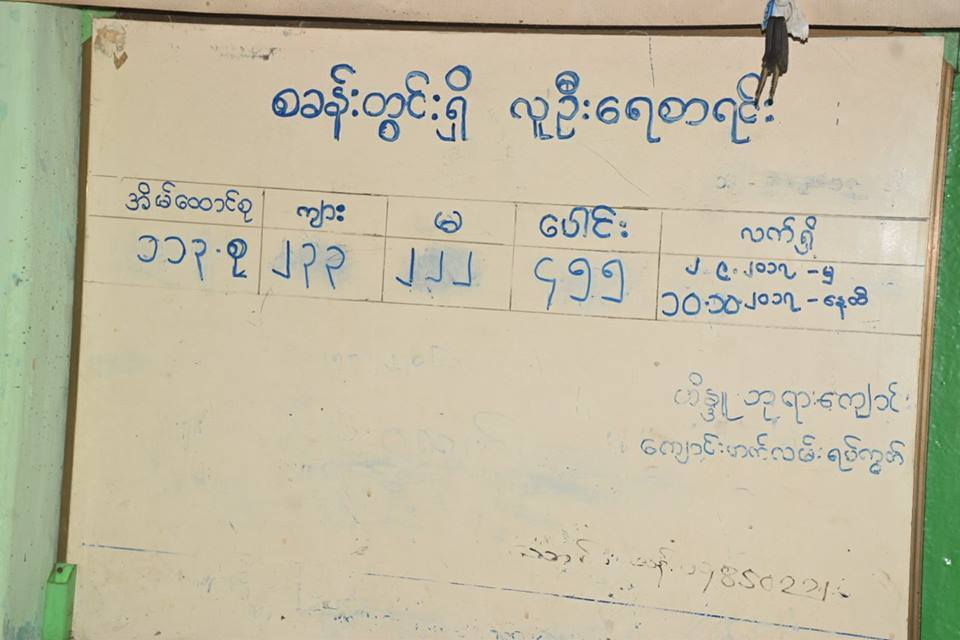 စခန်းတွင်းရှိ လူဦးရေစာရင်း
အိမ်ထောင်စု ကျား မ ပေါင်း လက်ရှိ
၁၁၃.စု ၂၃၃ ၂၂၂ ၄၅၅ ၂.၉.၂၀၁၇ - မှ
၁၀.၁၀.၂၀၁၇ - နေ့ထိ
ဟိန္ဒူ ဘုရားကျောင်း
ကျောင်းဟက်လမ်းရပ်ကွက်